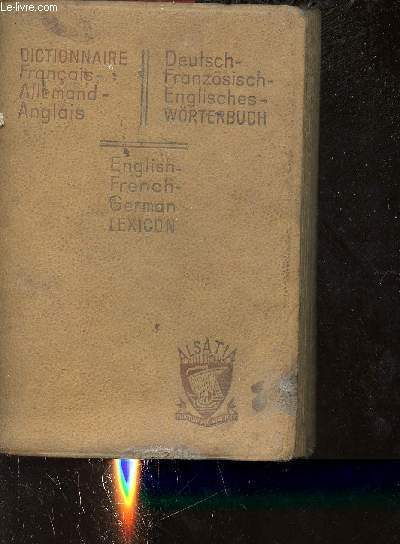 Le-livre.com
DICTIONNAIRE
Français-
Allemand-
Anglais
Deutsch-
Französisch-
Englisches-
WÖRTERBUCH
English-
French-
German
LEXICON
ALSATIA